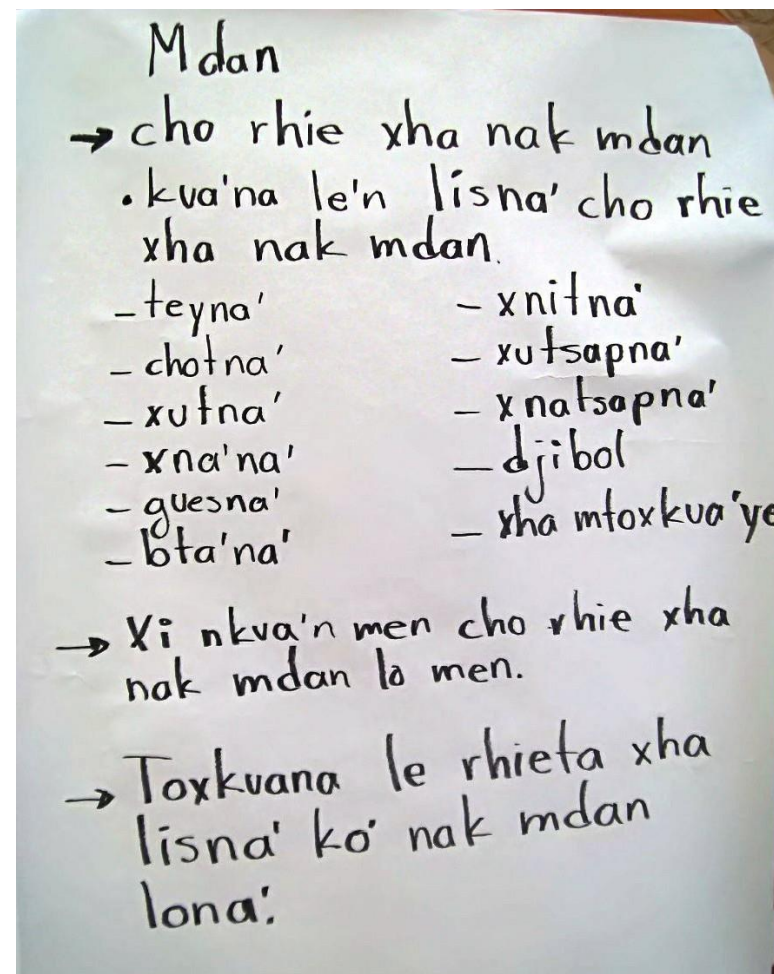 Mdan
→ cho rhie xha nak mdan
. kva'na le'n lisna' cho rhie
xha nak mdan.
- teyna'
- chotna'
- xutna'
- xna'na'
- guesna'
- bta'na'
- xnitna'
- xutsapna'
- xnatsapna'
- djibol
- xha mtoxkva'ye
→ Xi nkva'n men cho rhie xha
nak mdan lo men.
→ Toxkvana le rhieta xha
lisna' ko' nak mdan
lona'.